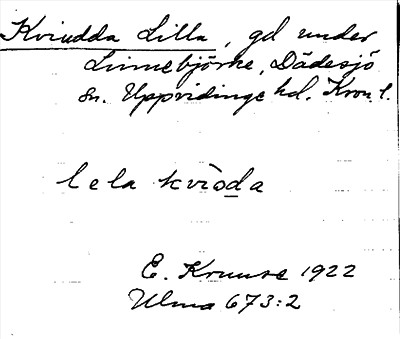 Kviudda Lilla, gd under
Linnebjörke, Dädesjö
sn. Uppvidinge hd. Kron. l.
lela kvìoda
E. Kruuse 1922
Ulma 673:2